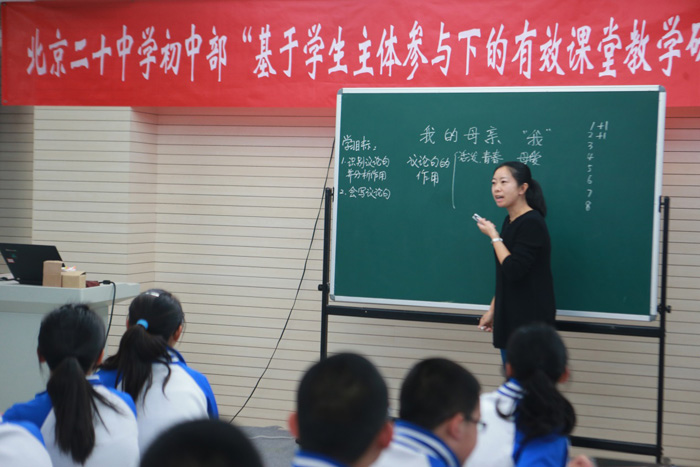 北京二十中学初中部“基于学生主体参与下的有效课堂教学研
我的母亲 “我”
学习目标：
1.识别议论句
并分析作用
2.会写议论句
议论句的
作用
青春 母亲
1
2
3
4
5
6
7
8